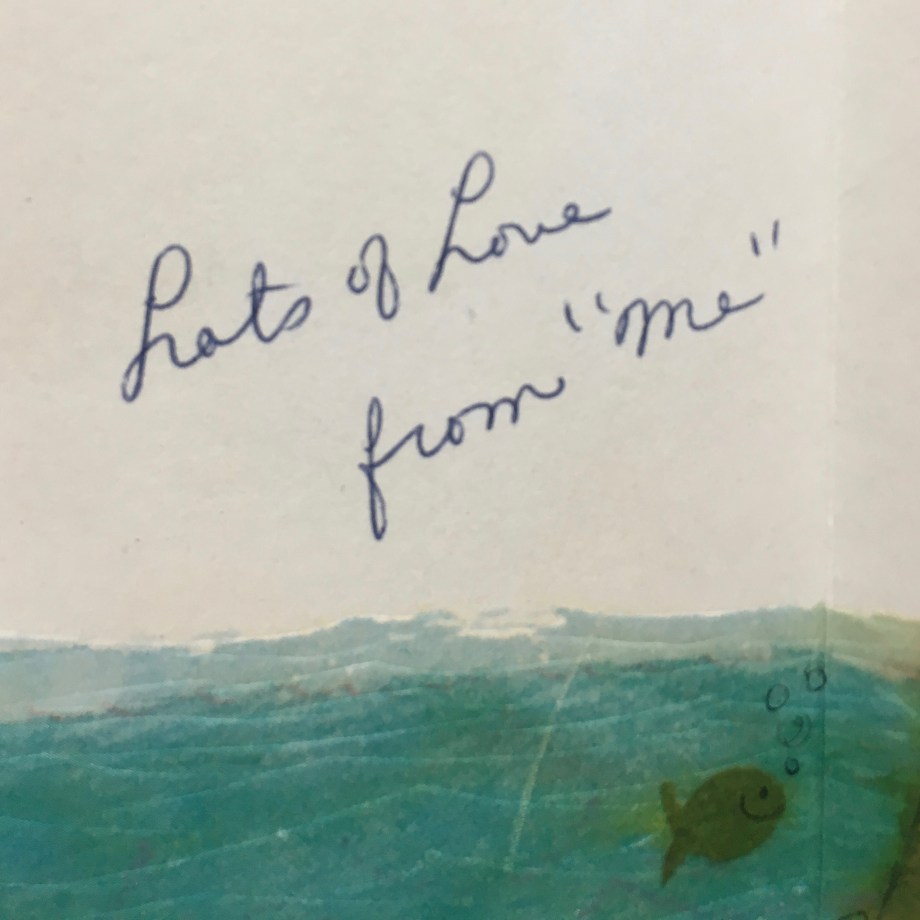 Lots of Love
from "me"